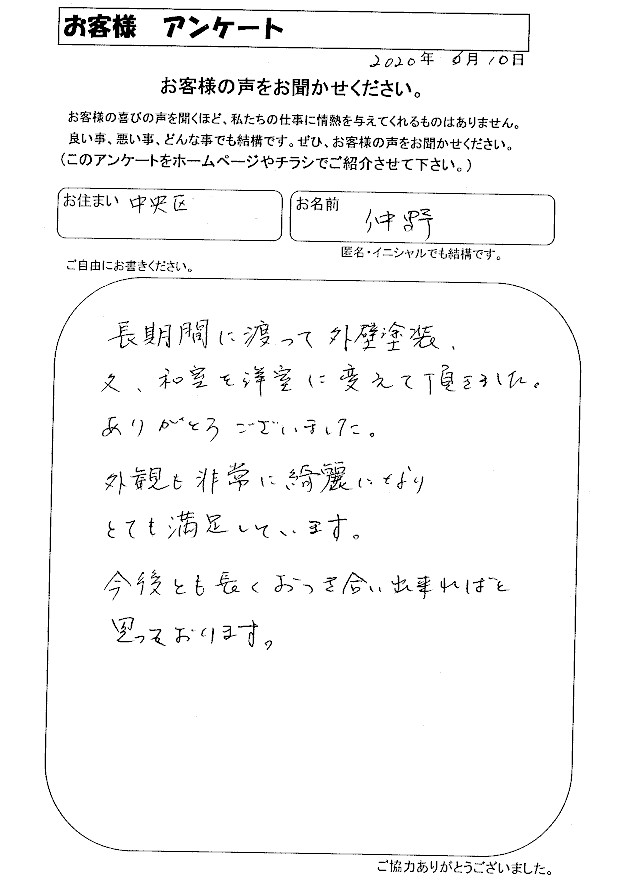 お客様　アンケート
2020年 6月10日
お客様の声をお聞かせください。
お客様の喜びの声を聞くほど、私たちの仕事に情熱を与えてくれるものはありません。
良い事、悪い事、どんな事でも結構です。ぜひ、お客様の声をお聞かせください。
（このアンケートをホームページやチラシでご紹介させて下さい。）
お住まい 中央区
お名前 仲野
匿名・イニシャルでも結構です。
ご自由にお書きください。
長期間に渡って外壁塗装、
又、和室を洋室に変えて頂きました。
ありがとうございました。
外観も非常に綺麗になり
とても満足しています。
今後とも長くおつき合い出来ればと
思っております。
ご協力ありがとうございました。